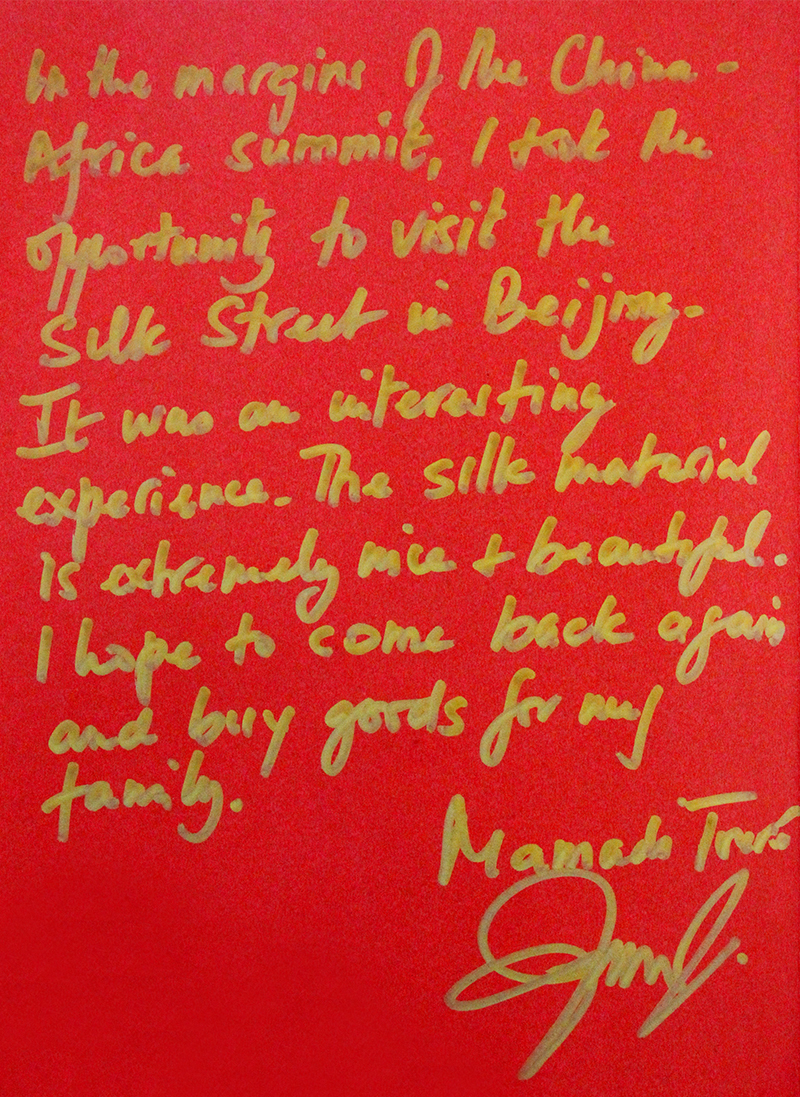 In the margins of the China-
Africa summit, I took the
opportunity to visit the
Silk Street in Beijing.
It was an interesting
experience. The silk material
is extremely nice + beautiful.
I hope to come back again
and buy goods for my
family.